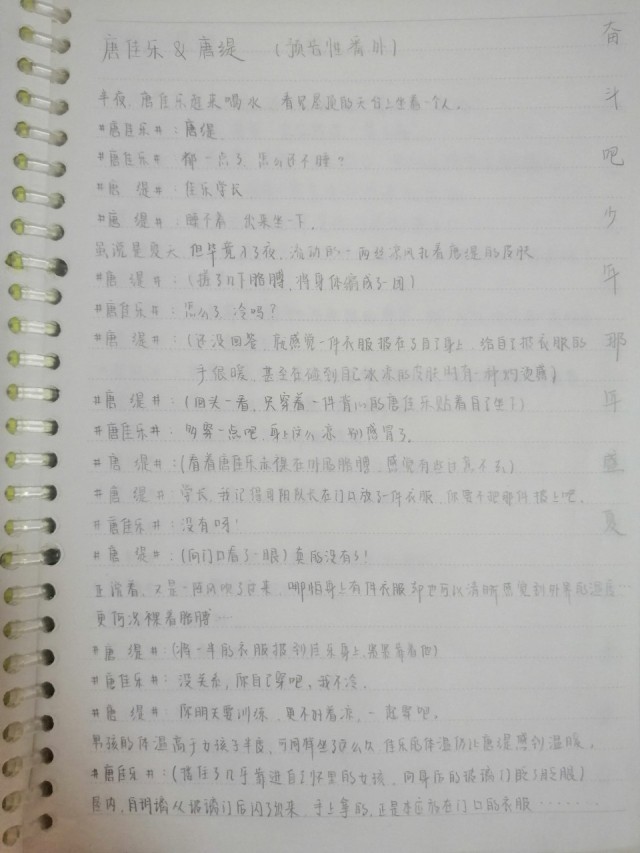 唐佳乐 & 唐缇 (预告性番外)
半夜,唐佳乐起来喝水 看见屋顶的天台上坐着一个人。
#唐佳乐#:唐缇
#唐佳乐#:都一点了,怎么还不睡?
#唐 缇#:佳乐学长
#唐 缇#:睡不着 出来坐一下.
虽说是夏天,但毕竟入了夜,流动的一两丝凉风扎着唐缇的皮肤
#唐 缇#:(搓了几下胳膊,将身体缩成了一团)
#唐佳乐#:怎么了,冷吗?
#唐 缇#:(还没回答,就感觉一件衣服披在了自己身上,给自己披衣服的
手很暖,甚至在碰到自己冰凉的皮肤时有一种灼烫感)
#唐 缇#:(回头一看,只穿着一件背心的唐佳乐贴着自己坐下)
#唐佳乐#:多穿一点吧,身上这么凉,别感冒了.
#唐 缇#:(看着唐佳乐的胳膊,感觉有些过意不去)
#唐 缇#:学长,我记得队长在门口放了一件衣服,你要不把那件披上吧.
#唐佳乐#:没有呀!
#唐 缇#:(向门口看了一眼)真的没有了!
正说着,又是一阵风吹了过来,哪怕身上有件衣服都也可以清晰感觉到外界的温度…
更何况裸着胳膊…
#唐 缇#:(将一半的衣服披到佳乐身上,紧紧靠着他)
#唐佳乐#:没关系,你自己穿吧,我不冷.
#唐 缇#:你明天要训练,更不好着凉,一起穿吧。
男孩的体温高于女孩子半度,可同样坐了这么久,佳乐的体温仍让唐缇感到温暖。
#唐佳乐#:(搂住了几乎靠进自己怀里的女孩,向身后的玻璃门眨了眨眼)
屋内,肖玥璃从玻璃门后闪了出来,手上拿的,正是本应放在门口的衣服……
奋
斗
吧
少
年
那
年
盛
夏